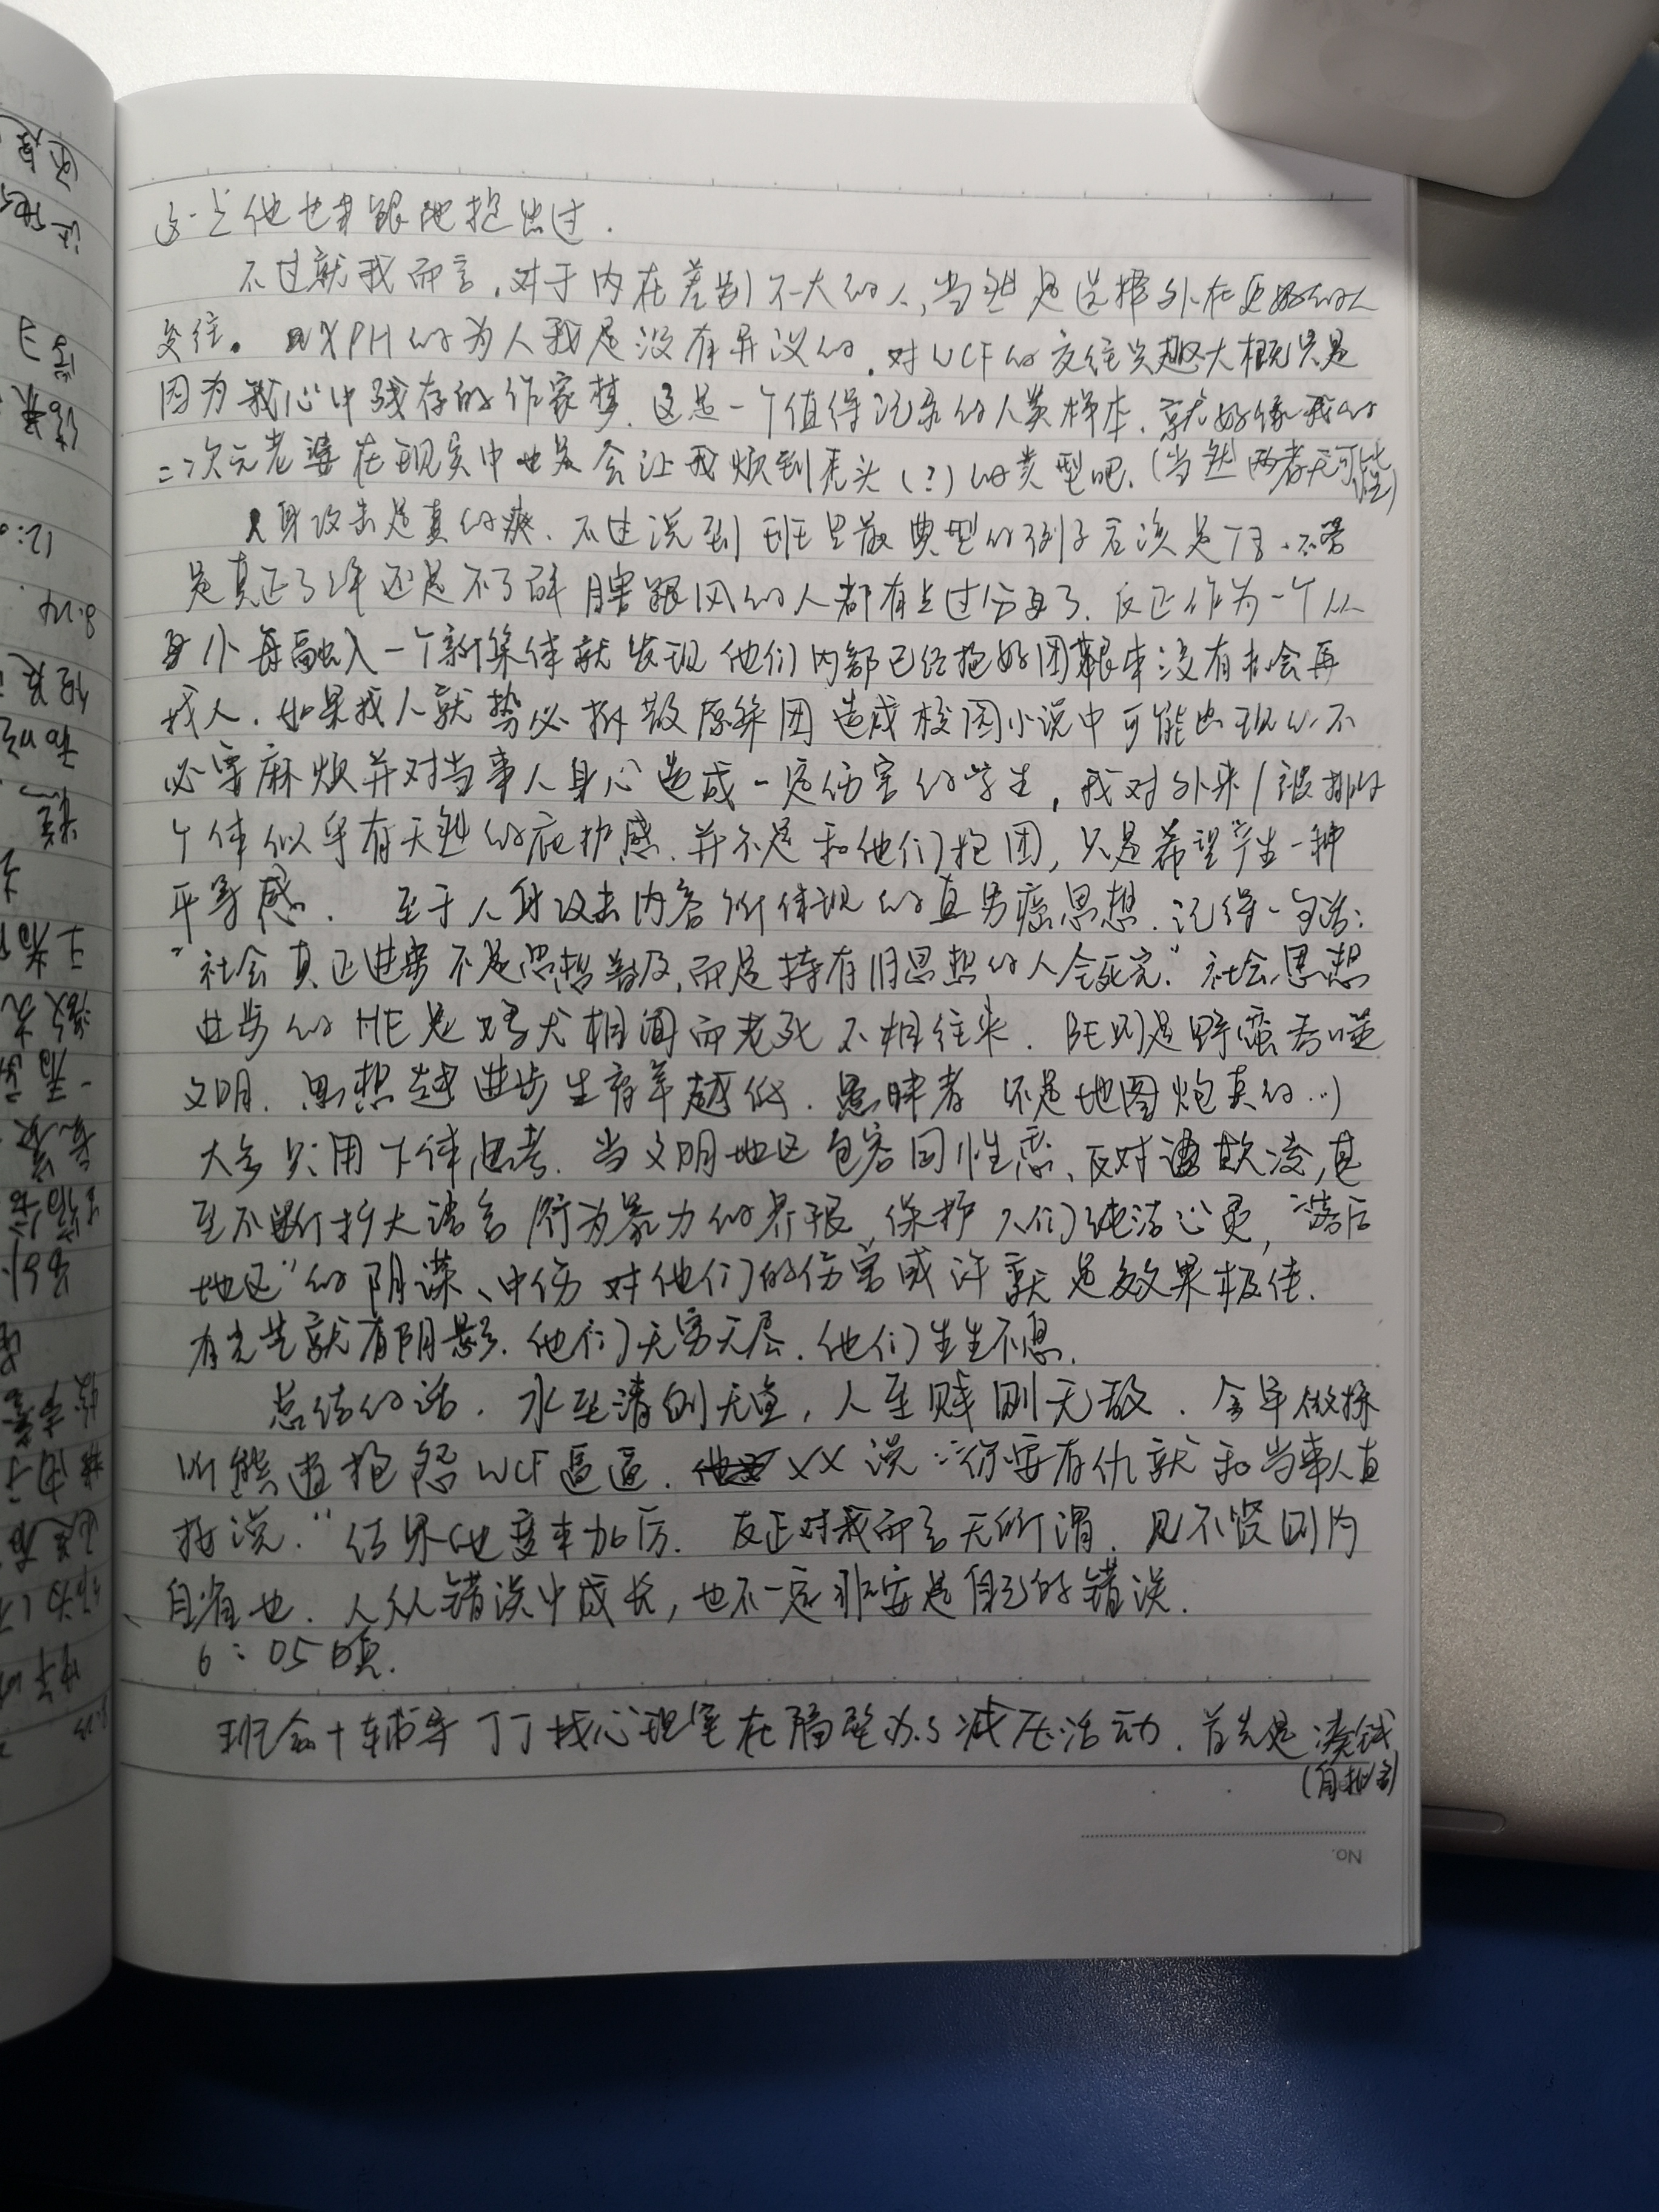 这一点他也未跟他提出过.
不过就我而言,对于内在差别不大的人,当然是选择外在更好的人
交往。XPH的为人我是没有异议的.对WCF的交往兴趣大概只是
因为我心中残存的作家梦.这是一个值得记录的人类样本.就好像我的
二次元老婆在现实中也是会让我烦到秃头(?)的类型吧.(当然两者无可比
人身攻击是真的爽.不过说到班里最典型的例子应该是.不管
是真正了解还是不了解瞎跟风的人都有点过分了.反正作为一个从
小每融入一个新集体就发现他们内部已经抱好团根本没有机会再
找人.如果找人就势必拆散原集团造成校园小说中可能出现的不
必要麻烦并对当事人身心造成一定伤害的学生,我对外来/被排的
个体似乎有天然的庇护感.并不是和他们抱团,只是希望产生一种
平等感.至于人身攻击内容所体现的直男癌思想.记得一句话:
“社会真正进步不是思想普及,而是持有旧思想的人会死完.”社会思想
进步的HE是鸡犬相闻而老死不相往来.BE则是野蛮吞噬
文明.思想越进步生育率越低.愚昧者(不是地图炮真的…)
大多只用下体思考.当文明地区包容同性恋、反对欺凌,甚
至不断扩大语言/行为暴力的界限,保护人们纯洁心灵,“落后
地区”的阴谋、中伤对他们的伤害或许就是效果极佳.
有光芒就有阴影.他们无穷无尽.他们生生不息.
总结的话.水至清则无鱼,人至贱则无敌.今早做操
听熊抱怨WCF逼逼.XX说:“你要有仇就和当事人直
接说.”结果他变本加厉.反正对我而言无所谓.见不贤则内
自省也.人从错误中成长,也不一定非要是自己的错误.
6:05 填.
班会+辅导 丁丁找心理室在隔壁办了减压活动.首先是凑钱